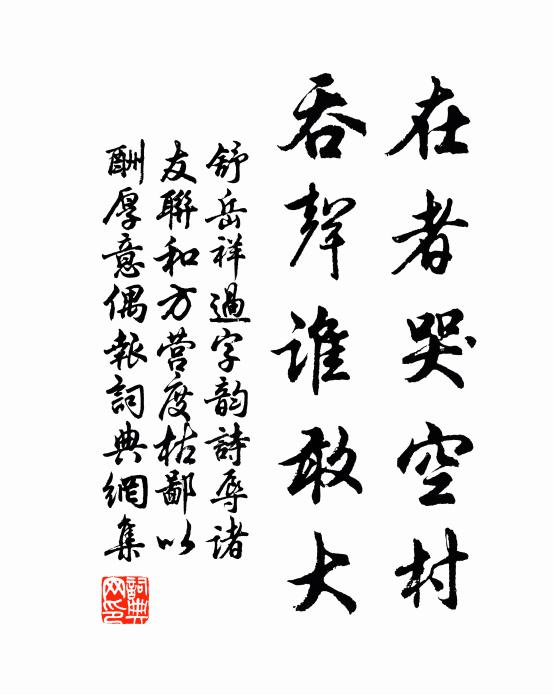 在者哭空村
吞聲誰敢大
舒岳祥過字韵詩辱諸
友聯和方營度枯鄙以
酬厚意偶報詞典網集
詞典
网印